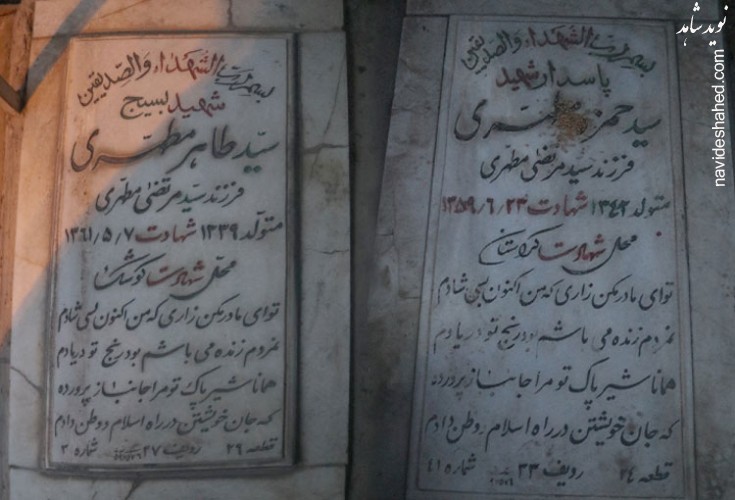 بسم رب الشهداء والصدیقین
شهید بسیج
سید طاهر مطهری
فرزند سید مرتضی مطهری
متولد ۱۳۳۹ شهادت ۱۳۶۱/۵/۷
محل شهادت کوشک
تو ای مادر مکن زاری که من اکنون بسی شادم
نمردم زنده می باشم بود رنج تو در یادم
همانا شیر پاک تو مرا جانباز پرورده
که جان خویشتن در راه اسلام و وطن دادم
قطعه ۲۹ ردیف ۲۷ شماره ۳
بسم رب الشهداء والصدیقین
پاسدار شهید
سید حمزه مطهری
فرزند سید مرتضی مطهری
متولد ۱۳۴۲ شهادت ۱۳۵۹/۶/۲۳
محل شهادت کردستان
تو ای مادر مکن زاری که من اکنون بسی شادم
نمردم زنده می باشم بود رنج تو در یادم
همانا شیر پاک تو مرا جانباز پرورده
که جان خویشتن در راه اسلام و وطن دادم
قطعه ۲۴ ردیف ۳۳ شماره ۴۱
نوید شاهد
navideshahed.com